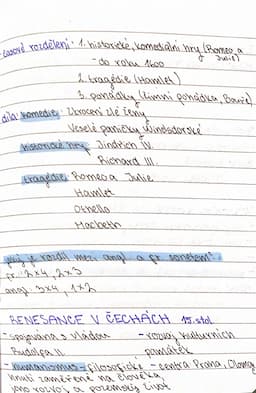 časové rozdělení: 1. historické, komediální hry (Romeo a Julie)
- do roku 1600
2. tragédie (Hamlet)
3. pohádky (Zimní pohádka, Bouře)
díla: komedie: Zkrocení zlé ženy
Veselé paničky Windsdorské
historické hry: Jindřich IV.
Richard III.
tragédie: Romeo a Julie
Hamlet
Othello
Macbeth
jaký je rozdíl mezi angl. a fr. sonetem?
fr.: 2x4, 2x3
angl.: 3x4, 1x2
RENESANCE V ČECHÁCH 15. stol.
- spojována s vládou - rozvoj kulturních
Rudolfa II. památek
- humanismus - filosofické - centra Praha, Olomouc
hnutí zaměřené na člověka
jeho rozvoj a pozemský život